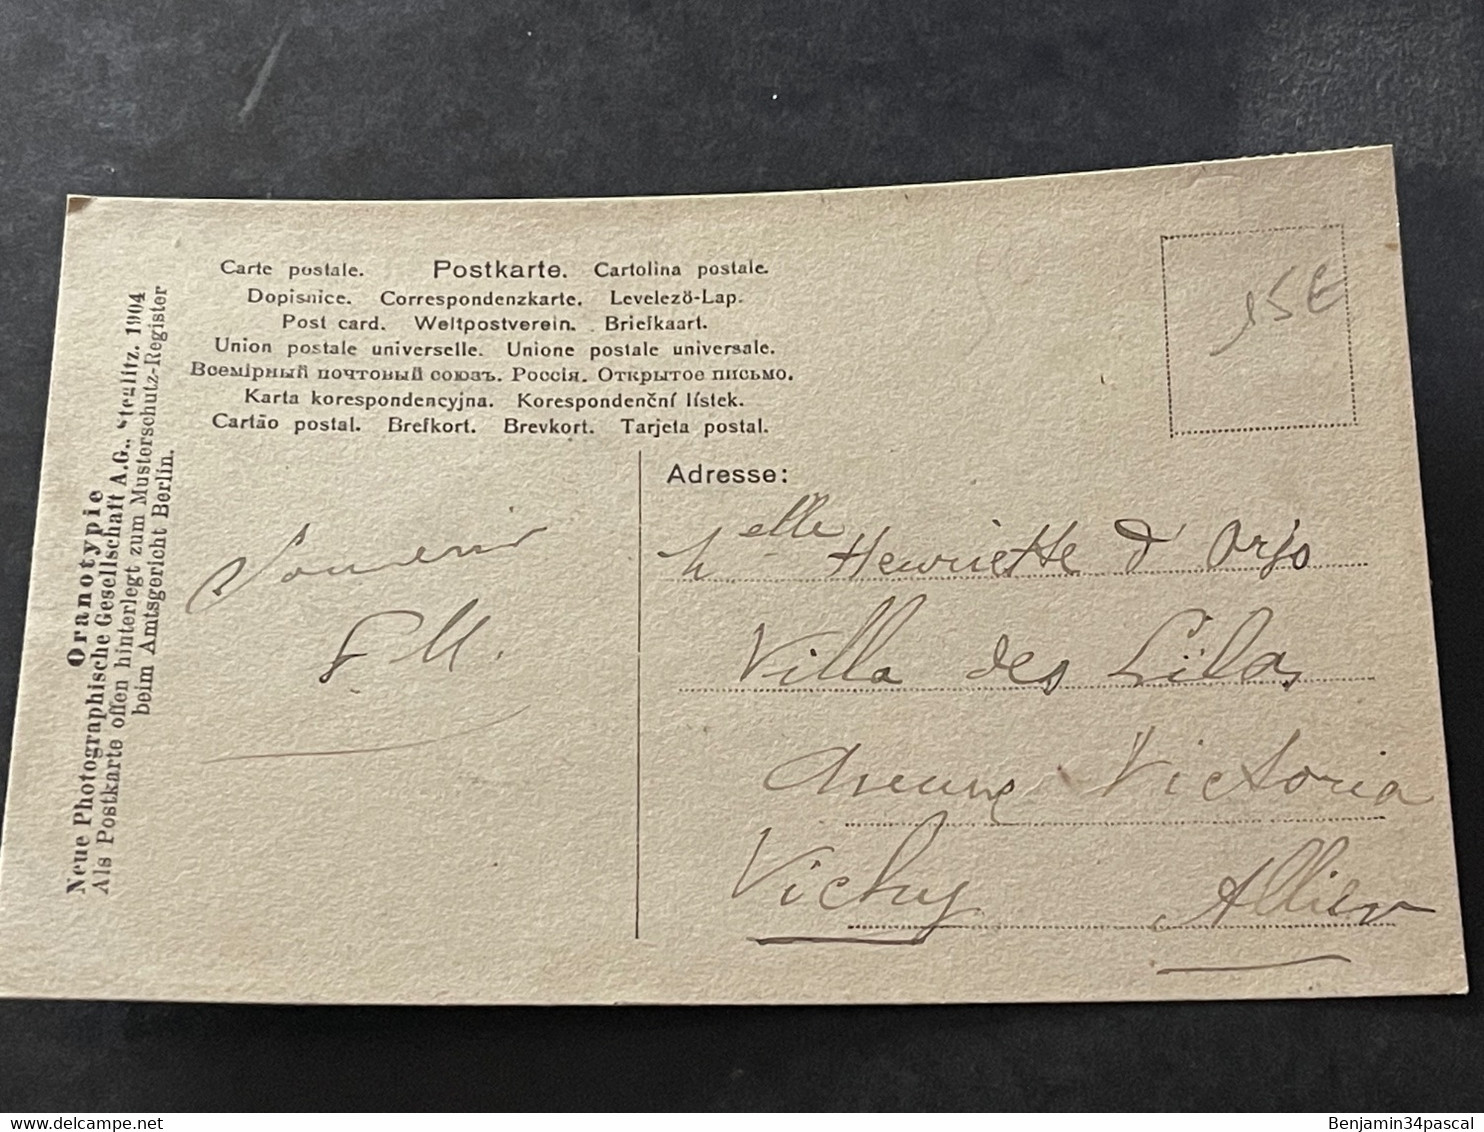 Carte postale. Postkarte. Cartolina postale.
Dopisnice. Correspondenzkarte. Levelező-Lap.
Post card. Weltpostverein. Briefkaart.
Union postale universelle. Unione postale universale.
Всемірный почтовый союзъ. Россія. Открытое письмо.
Karta korespondencyjna. Korespondenční lístek.
Cartão postal. Brefkort. Brevkort. Tarjeta postal.
15€
Oranotypie
Neue Photographische Gesellschaft A.G., Steglitz. 1904
Als Postkarte offen hinterlegt zum Musterschutz-Register
beim Amtsgericht Berlin.
Souvenir
F M.
Adresse:
Melle Henriette d'Orjo
Villa des Lilas
Avenue Victoria
Vichy Allier
delcampe.net
Benjamin34pascal